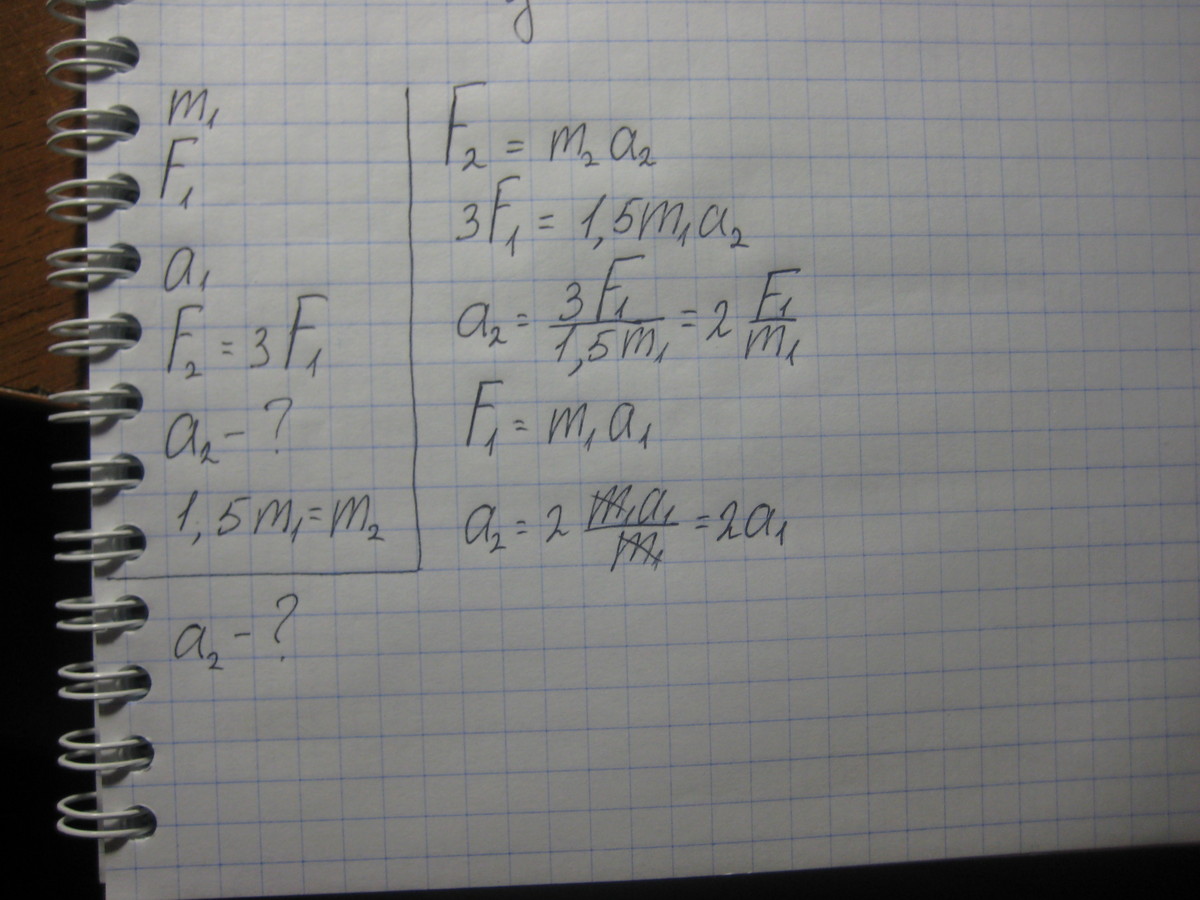 m₁
F₁
a₁
F₂ = 3F₁
a₂ - ?
1,5m₁ = m₂
a₂ - ?
F₂ = m₂a₂
3F₁ = 1,5m₁a₂
a₂ = 3F₁/1,5m₁ = 2 F₁/m₁
F₁ = m₁a₁
a₂ = 2 m₁a₁/m₁ = 2a₁